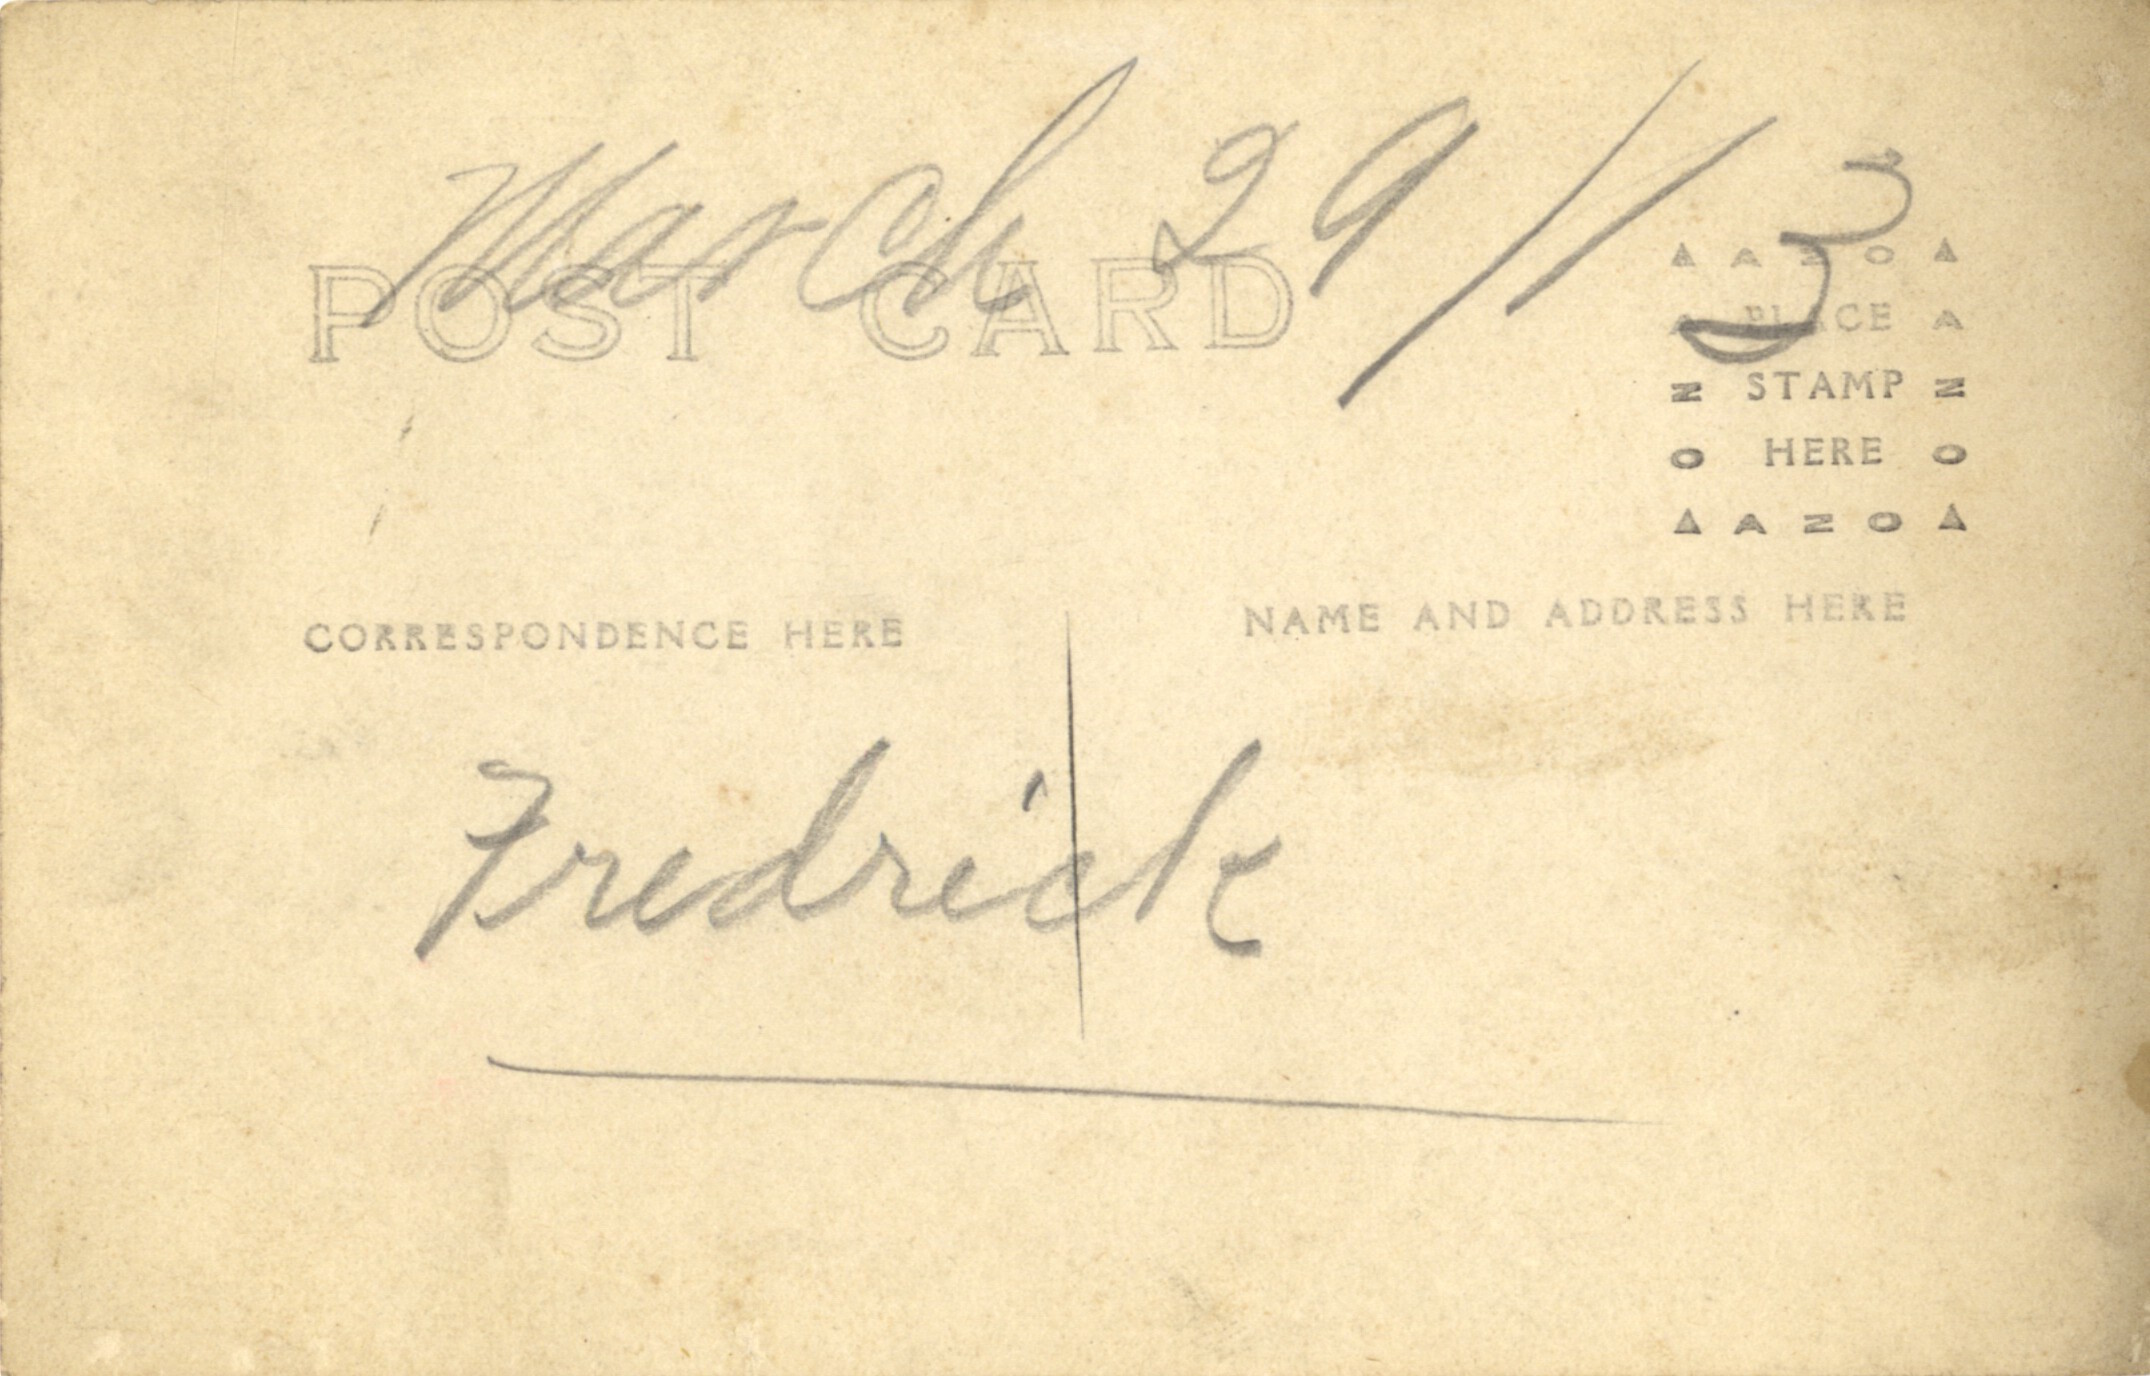 March 29/13
POST CARD
▲ A Z O ▲
A PLACE A
Z STAMP Z
O HERE O
▲ A Z O ▲
CORRESPONDENCE HERE
NAME AND ADDRESS HERE
Fredrick